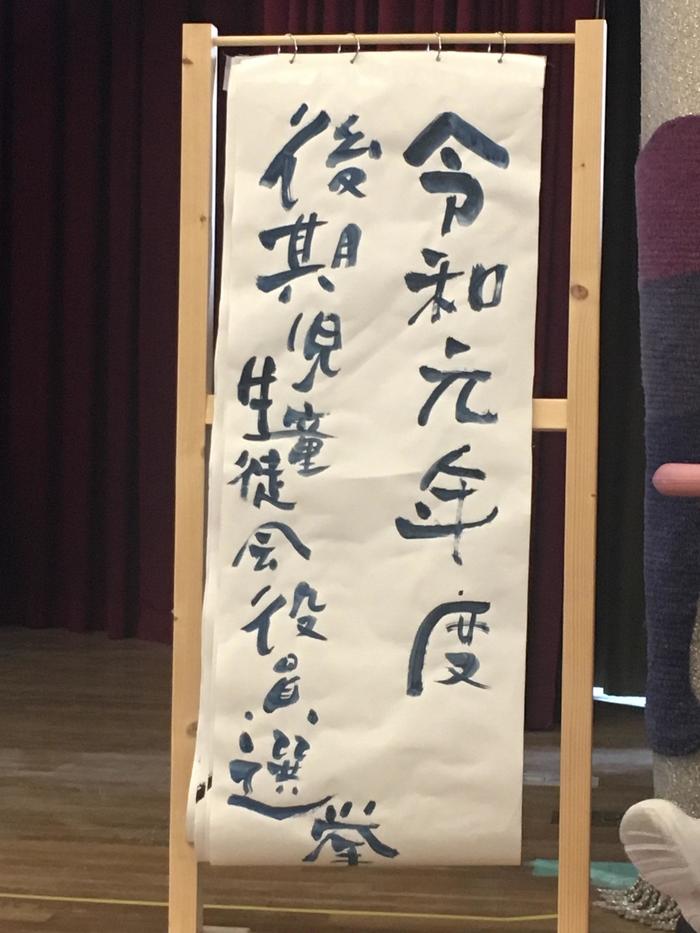 令和元年度
後期児童生徒会役員選挙